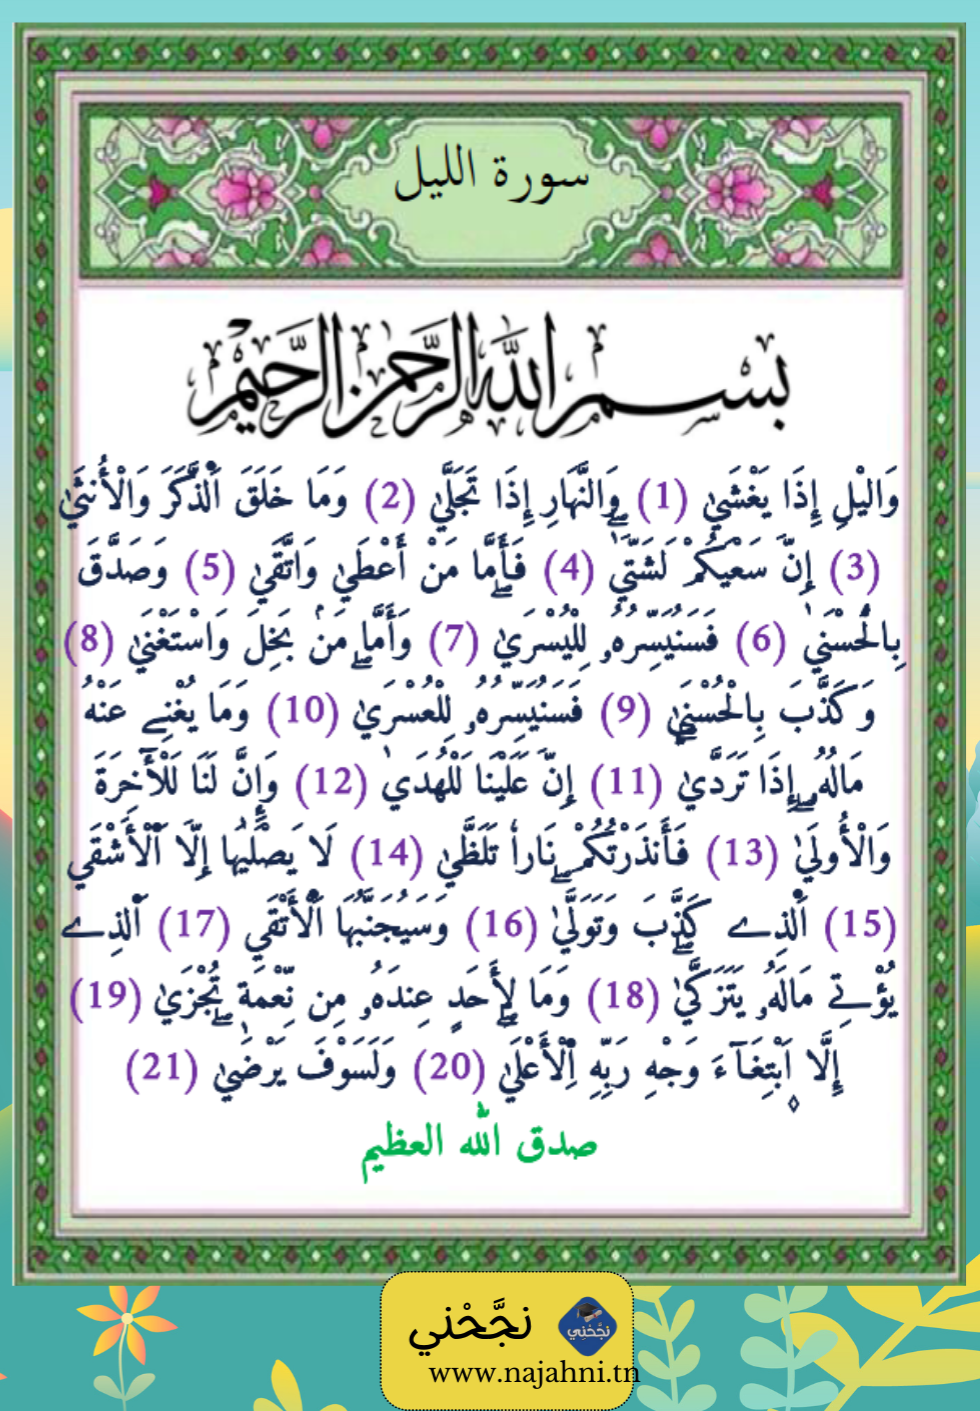 سورة الليل
بسم الله الرحمن الرحيم
وَالْيْلِ إِذَا يَغْشَيٰ (1) وَالنَّهَارِ إِذَا تَجَلَّيٰ (2) وَمَا خَلَقَ اَلذَّكَرَ وَالْأُنثَيٰ
(3) إِنَّ سَعْيَكُمْ لَشَتَّيٰ (4) فَأَمَّا مَنْ أَعْطَيٰ وَاتَّقَيٰ (5) وَصَدَّقَ
بِالْحُسْنَيٰ (6) فَسَنُيَسِّرُهُۥ لِلْيُسْرَيٰ (7) وَأَمَّا مَنۢ بَخِلَ وَاسْتَغْنَيٰ (8)
وَكَذَّبَ بِالْحُسْنَيٰ (9) فَسَنُيَسِّرُهُۥ لِلْعُسْرَيٰ (10) وَمَا يُغْنِے عَنْهُ
مَالُهُۥ إِذَا تَرَدَّيٰ (11) إِنَّ عَلَيْنَا لَلْهُدَيٰ (12) وَإِنَّ لَنَا لَلْأٓخِرَةَ
وَالْأُولَيٰ (13) فَأَنذَرْتُكُمْ نَاراٗ تَلَظَّيٰ (14) لَا يَصْلَيٰهَا إِلَّا اَلْأَشْقَي
(15) اَلذِے كَذَّبَ وَتَوَلَّيٰ (16) وَسَيُجَنَّبُهَا اَلْأَتْقَي (17) اَلذِے
يُؤْتِے مَالَهُۥ يَتَزَكَّيٰ (18) وَمَا لِأَحَدٍ عِندَهُۥ مِن نِّعْمَةٖ تُجْزَيٰ (19)
إِلَّا اَبْتِغَآءَ وَجْهِ رَبِّهِ اِلْأَعْلَيٰ (20) وَلَسَوْفَ يَرْضَيٰ (21)
صدق الله العظيم
نجَّحْني
نجَّحْني
www.najahni.tn